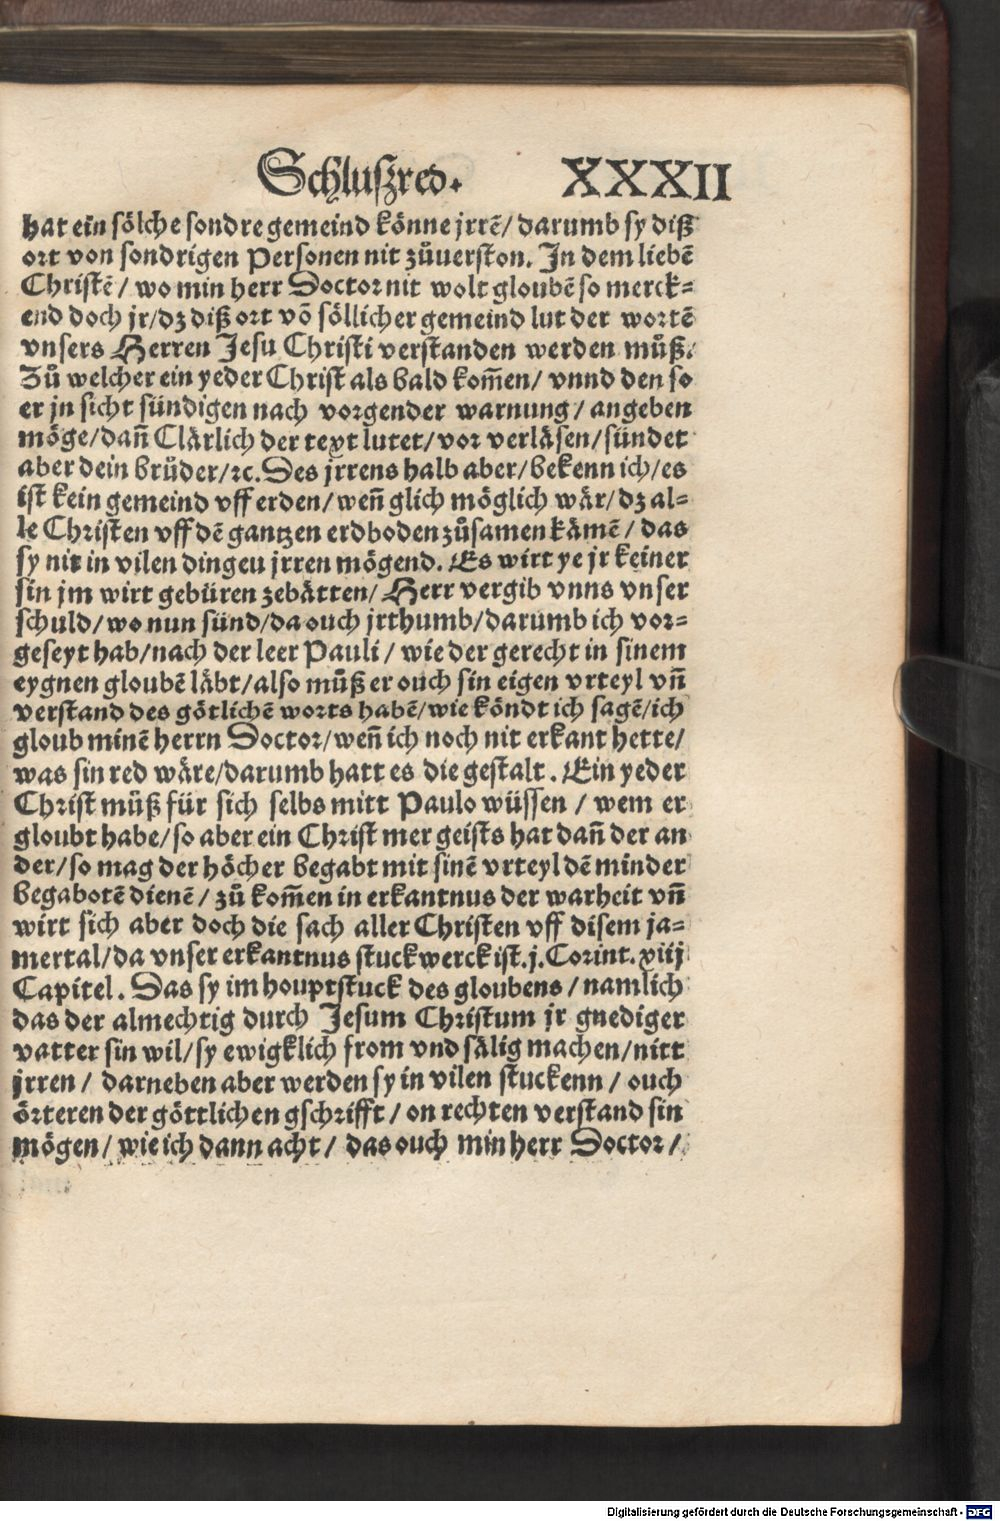 Schluszred. XXXII
hat ein sölche sondre gemeind könne jrrē/ darumb sy diß
ort von sondrigen Personen nit zůuerston. In dem liebē
Christē/ wo min herr Doctor nit wolt gloubē so merck⸗
end doch jr/dz diß ort vō söllicher gemeind lut der wortē
vnsers Herren Jesu Christi verstanden werden můß.
Zů welcher ein yeder Christ als bald kom̄en/ vnnd den so
er jn sicht sündigen nach vorgender warnung/ angeben
möge/dan̄ Clärlich der text lutet/vor verläsen/sündet
aber dein brůder/⁊c. Des jrrens halb aber/bekenn ich/es
ist kein gemeind vff erden/wen̄ glich möglich wär/dz al⸗
le Christen vff dē gantzen erdboden zůsamen kämē/ das
sy nit in vilen dingeu jrren mögend. Es wirt ye jr keiner
sin jm wirt gebüren zebätten/ Herr vergib vnns vnser
schuld/wo nun sünd/da ouch jrthumb/darumb ich vor⸗
geseyt hab/nach der leer Pauli/ wie der gerecht in sinem
eygnen gloubē läbt/also můß er ouch sin eigen vrteyl vn̄
verstand des götlichē worts habē/wie köndt ich sagē/ich
gloub minē herrn Doctor/wen̄ ich noch nit erkant hette/
was sin red wäre/darumb hatt es die gestalt. Ein yeder
Christ můß für sich selbs mitt Paulo wüssen/ wem er
gloubt habe/so aber ein Christ mer geists hat dan̄ der an
der/so mag der höcher begabt mit sinē vrteyl dē minder
begabotē dienē/ zů kom̄en in erkantnus der warheit vn̄
wirt sich aber doch die sach aller Christen vff disem ja⸗
mertal/da vnser erkantnus stuckwerck ist.j. Corint. xiij
Capitel. Das sy im houptstuck des gloubens/namlich
das der almechtig durch Jesum Christum jr gnediger
vatter sin wil/sy ewigklich from vnd sälig machen/nitt
jrren/ darneben aber werden sy in vilen stuckenn/ ouch
örteren der göttlichen gschrifft/on rechten verstand sin
mögen/wie ich dann acht/ das ouch min herr Doctor/
Digitalisierung gefördert durch die Deutsche Forschungsgemeinschaft - DFG